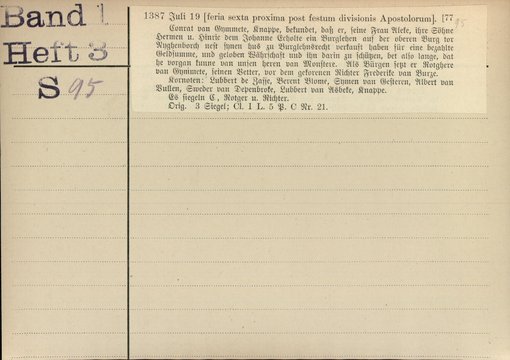 Band 1
Heft 3
S 95
1387 Juli 19 [feria sexta proxima post festum divisionis Apostolorum]. [77
95
Conrat van Gymmete, Knappe, bekundet, daß er, seine Frau Aleke, ihre Söhne
Hermen u. Hinric dem Johanne Scholte ein Burglehen auf der oberen Burg tor
Nyghenborch nest synen hus zu Burglehnsrecht verkauft haben für eine bezahlte
Geldsumme, und geloben Währschaft und ihn darin zu schützen, ber also lange, dat
he vorgan kunne van unsen heren van Monstere. Als Bürgen setzt er Rotghere
van Gymmete, seinen Vetter, vor dem gekorenen Richter Frederike van Burze.
Kornoten: Lubbert de Jasse, Berent Blome, Symen van Gesteren, Albert van
Bullen, Sweder van Depenbroke, Lubbert van Asbeke, Knappe.
Es siegeln C, Rotger u. Richter.
Orig. 3 Siegel; Cl. I L. 5 P. C Nr. 21.